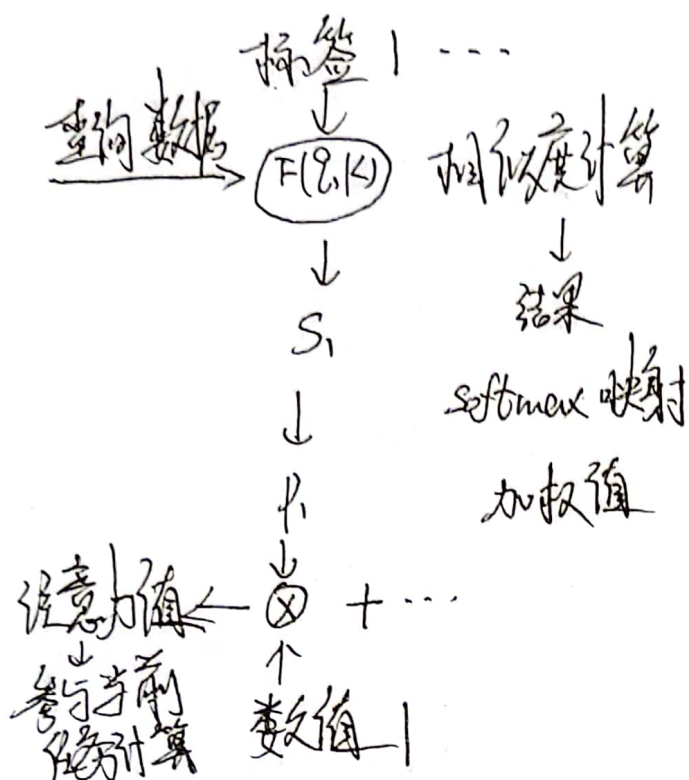 标签1 ....
查询数据 F(q,K) 相似度计算
S₁ 结果
softmax 映射
P₁ 加权值
注意力值 ⊗ + ...
参与当前
任务计算 数值1